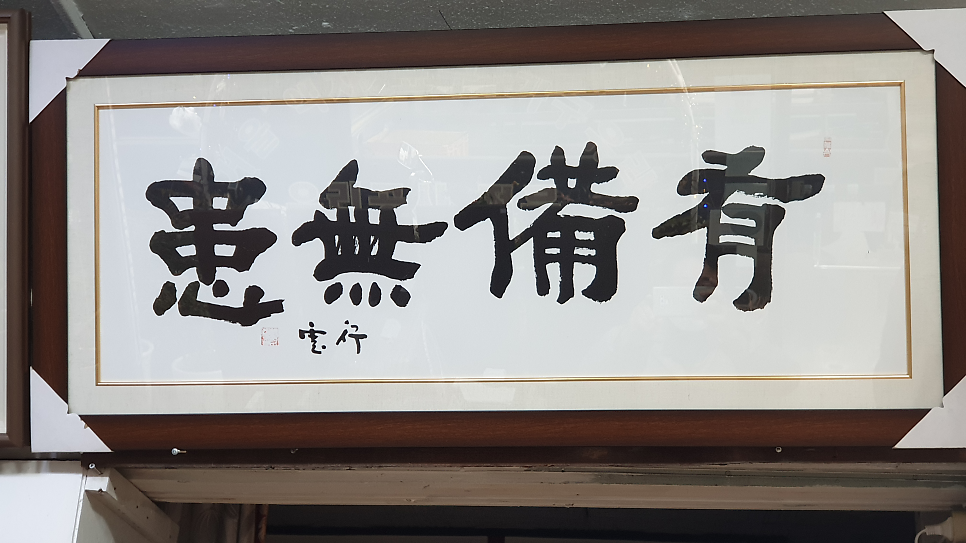 有備無患
行雲